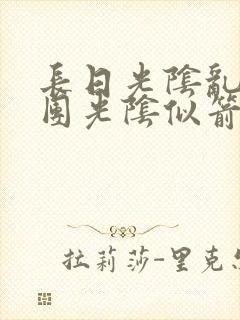 長日光陰亂
團光陰似箭
拉莉莎-里克